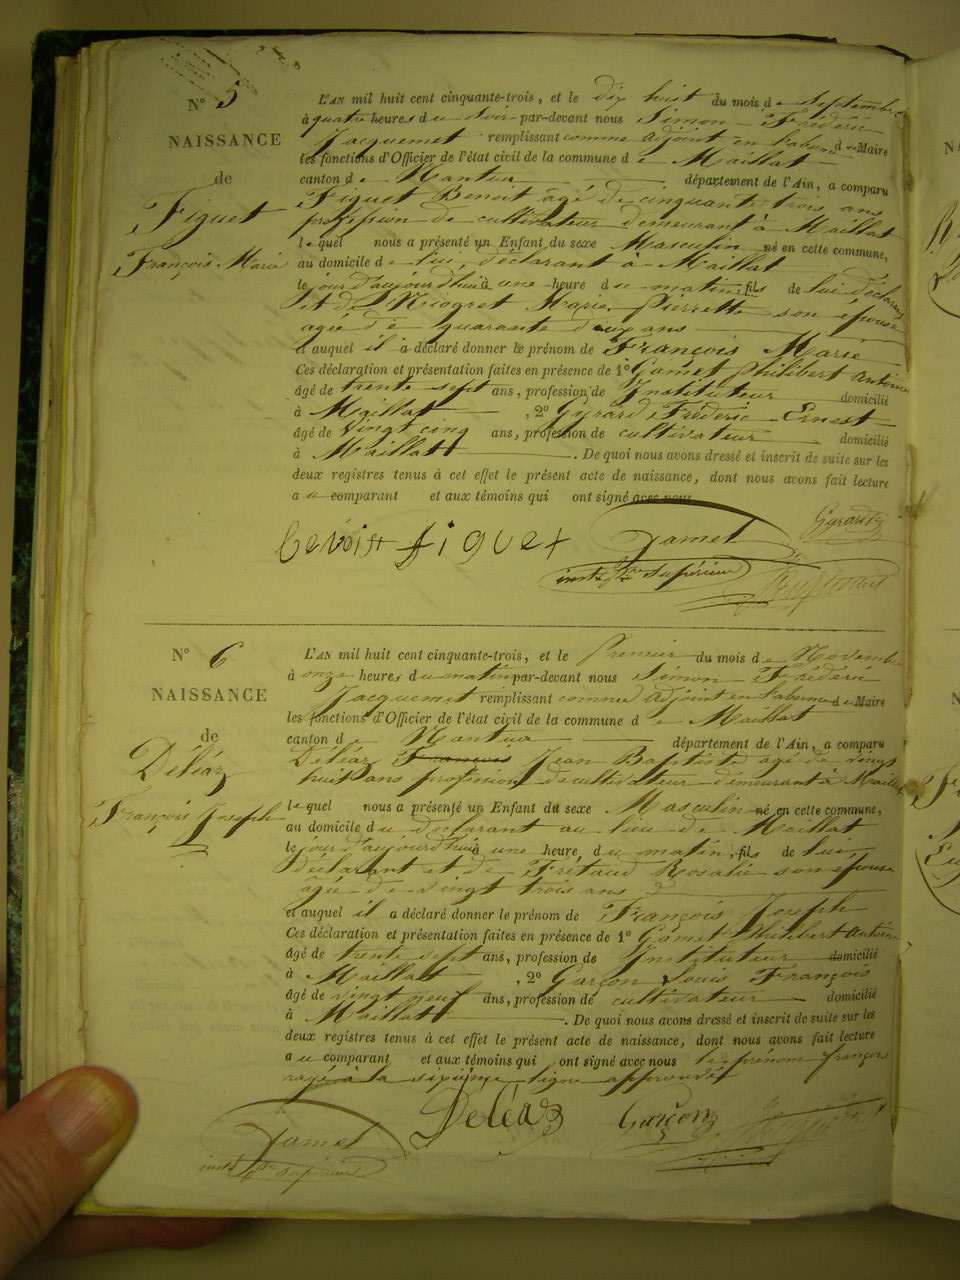 N° 5
NAISSANCE
de
Figuet
François Marie
L'AN mil huit cent cinquante-trois, et le dix huit du mois de Septembre
à quatre heures du soir par-devant nous Simon Frédéric
Jacquemet remplissant comme adjoint en l'absence de Maire
les fonctions d'Officier de l'état civil de la commune de Maillat
canton de Nantua département de l'Ain, a comparu
Figuet Benoit âgé de cinquante trois ans
profession de cultivateur demeurant à Maillat
lequel nous a présenté un Enfant du sexe Masculin né en cette commune,
au domicile de lui, déclarant à Maillat
le jour d'aujourd'hui à une heure du matin, fils de lui déclarant
et de Niogret Marie Pierrette son épouse
agée de quarante deux ans
et auquel il a déclaré donner le prénom de François Marie
Ces déclaration et présentation faites en présence de 1° Gamet Philibert Antoine
âgé de trente sept ans, profession de Instituteur domicilié
à Maillat, 2° Gyrard Frédéric Ernest
âgé de vingt cinq ans, profession de cultivateur domicilié
à Maillat. De quoi nous avons dressé et inscrit de suite sur les
deux registres tenus à cet effet le présent acte de naissance, dont nous avons fait lecture
au comparant et aux témoins qui ont signé avec nous
Benoist Figuet Gamet Gyrard
supérieur
N° 6
NAISSANCE
de
Déléaz
François Joseph
L'AN mil huit cent cinquante-trois, et le Premier du mois de Novembre
à onze heures du matin par-devant nous Simon Frédéric
Jacquemet remplissant comme adjoint en l'absence de Maire
les fonctions d'Officier de l'état civil de la commune de Maillat
canton de Nantua département de l'Ain, a comparu
Déléaz François Jean Baptiste agé de vingt
huit ans profession de cultivateur demeurant à Maillat
lequel nous a présenté un Enfant du sexe Masculin né en cette commune,
au domicile du déclarant au lieu de Maillat
le jour d'aujourd'hui à une heure du matin, fils de lui,
déclarant et de Frétaud Rosalie son épouse
agée de vingt trois ans
et auquel il a déclaré donner le prénom de François Joseph
Ces déclaration et présentation faites en présence de 1° Gamet Philibert Antoine
âgé de trente sept ans, profession de Instituteur domicilié
à Maillat, 2° Garçon Louis François
âgé de vingt neuf ans, profession de cultivateur domicilié
à Maillat. De quoi nous avons dressé et inscrit de suite sur les
deux registres tenus à cet effet le présent acte de naissance, dont nous avons fait lecture
au comparant et aux témoins qui ont signé avec nous le prénom françois
rayé à la sixième ligne approuvé
Déléaz Garçon
Gamet
supérieur